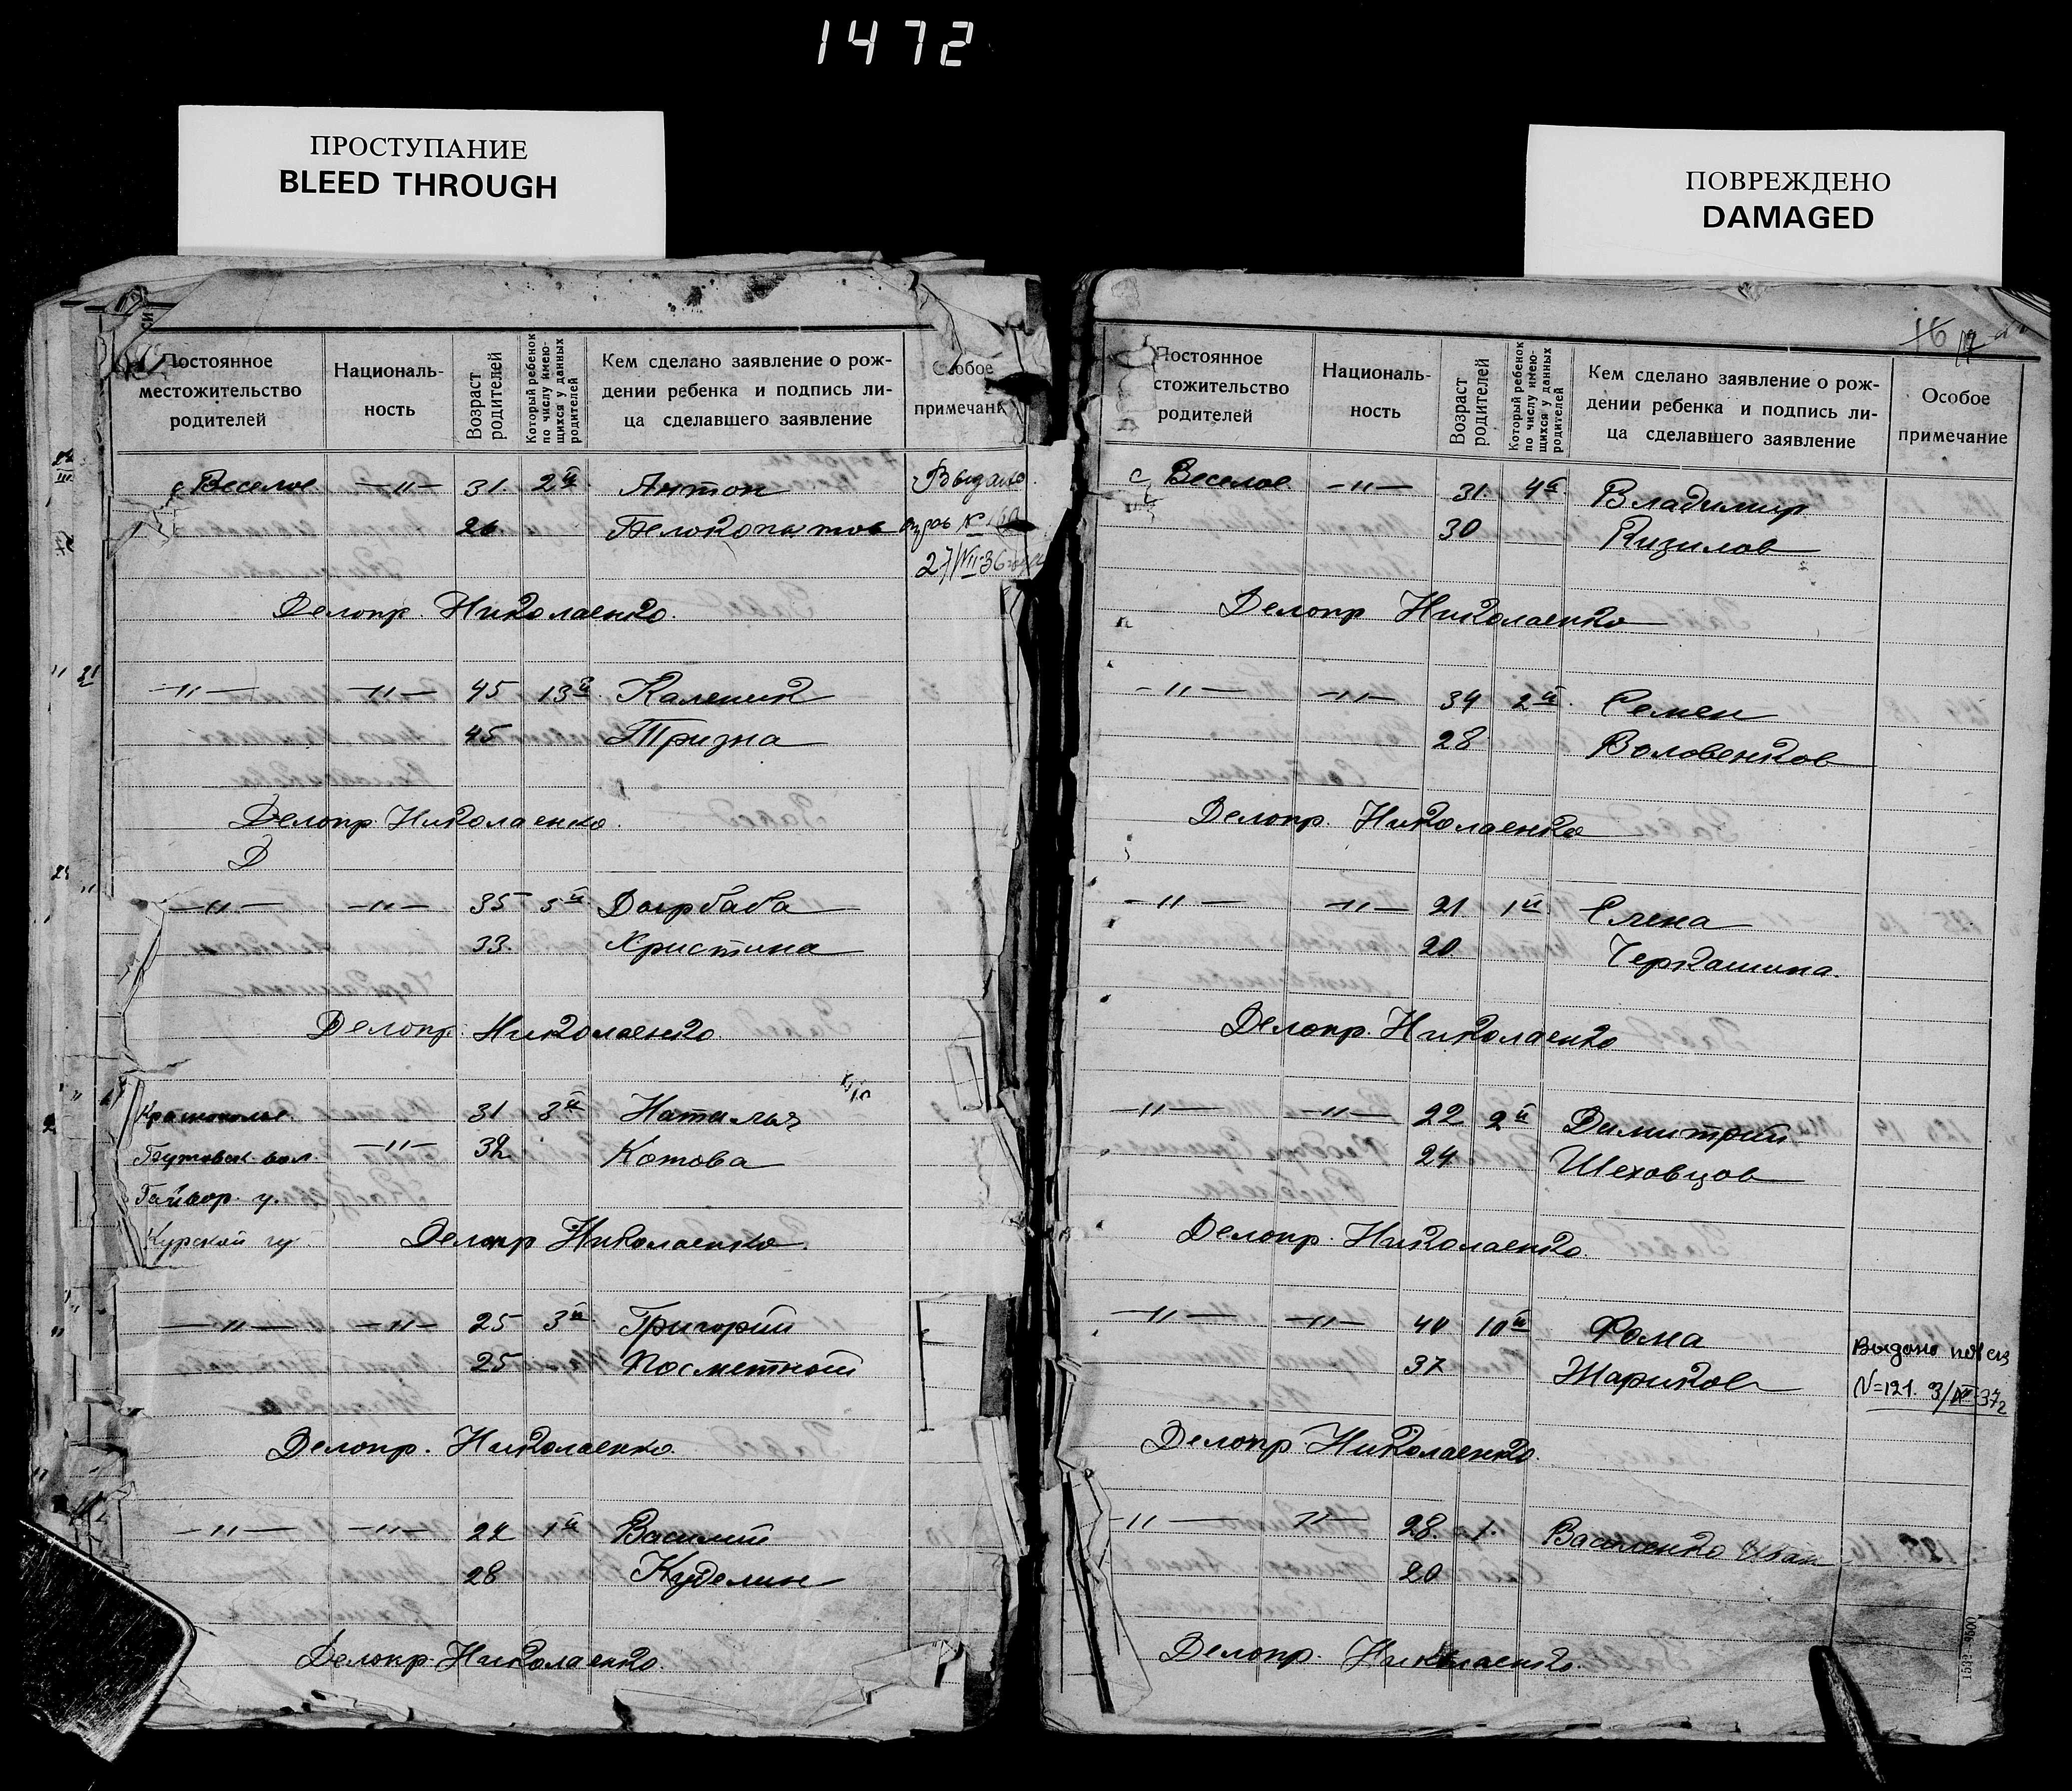 1472
ПРОСТУПАНИЕ
BLEED THROUGH
ПОВРЕЖДЕНО
DAMAGED
Постоянное местожительство родителей
Националь-ность
Возраст родителей
Который ребенок по числу имею-щихся у данных родителей
Кем сделано заявление о рож-дении ребенка и подпись ли-ца сделавшего заявление
Особое примечани
с Веселое —"— 31. 2й Антон Выдано
26. Белокопытов №
27/VII 36 года
Делопр. Николаенко.
—"— —"— 45 13й Каленик
45 Тризна
Делопр. Николаенко.
Д
—"— —"— 35 5й Догрбаба
33. Христина
Делопр. Николаенко.
Краснополье. 31 3й Наталья
Бутовск. вол. —"— 32 Котова
Гайвор. у.
Курской гу Делопр Николаенко.
—"— —"— 25 3й Григорий
25 Посметный
Делопр. Николаенко.
—"— —"— 24 1й Василий
28 Куделин
Делопр. Николаенко.
16
Постоянное стожительство родителей
Националь-ность
Возраст родителей
Который ребенок по числу имею-щихся у данных родителей
Кем сделано заявление о рож-дении ребенка и подпись ли-ца сделавшего заявление
Особое примечание
с Веселое. —"— 31. 4й Владимир
30 Кизилов
Делопр Николаенко
—"— —"— 34 2й. Семен
28 Воловенков
Делопр. Николаенко
—"— —"— 21 1й Елена
20 Черкашина.
Делопр. Николаенко
—"— —"— 22 2й Димитрий
24 Шеховцов
Делопр. Николаенко.
—"— —"— 40 10й Фома
37 Жариков
Выдано
N=121. 3/ 37г
Делопр. Николаенко.
—"— —"— 28. 1. Василенко Иван
20
Делопр. Николаенко.